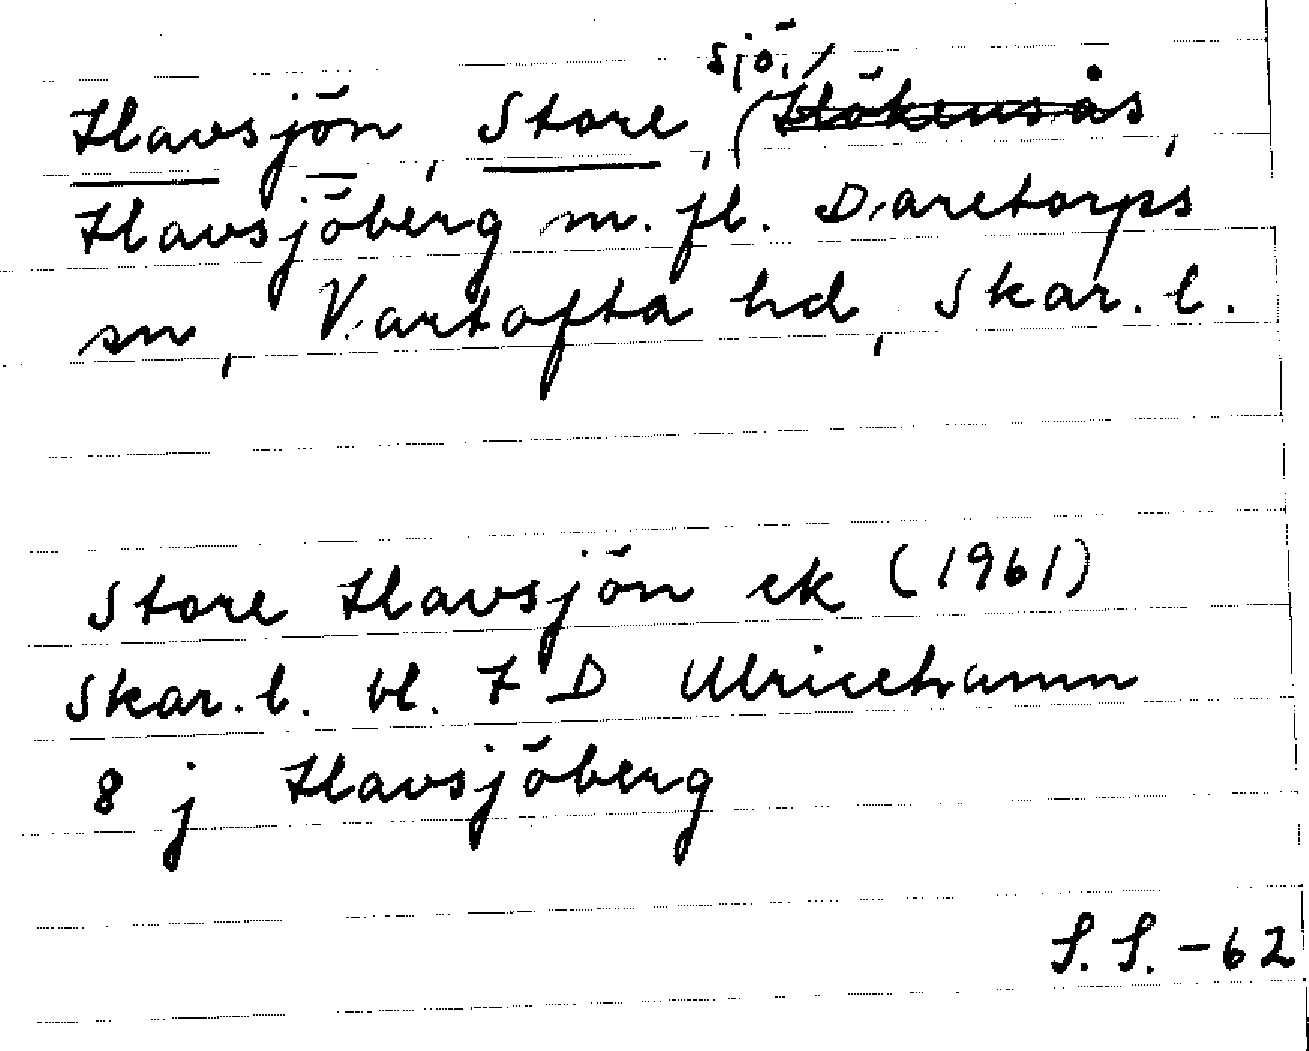 Havsjön, Store, (sjö, Hökensås,
Havsjöberg m. fl. Daretorps
sn, Vartofta hd, Skar. l.
Store Havsjön ek (1961)
Skar. l. bl. 7 D Ulricehamn
8 j Havsjöberg
S. S. -62